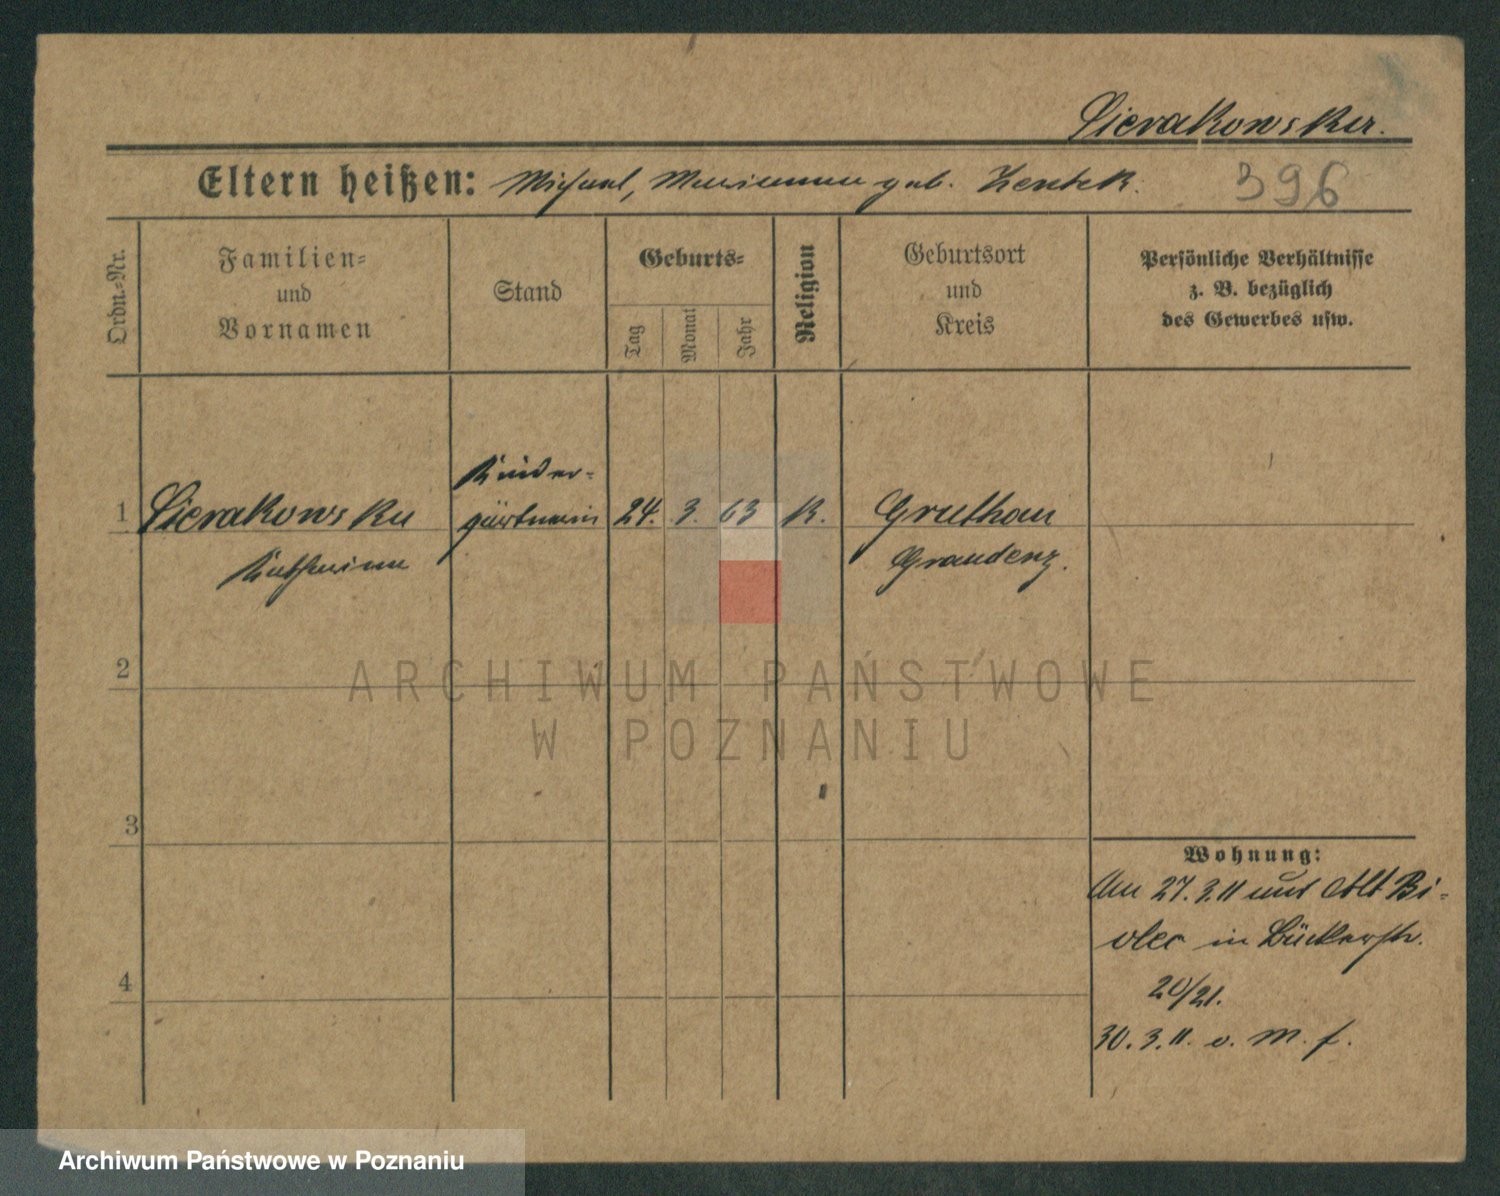 Sierakowska.
Eltern heißen: Michael, Marianna geb. Zentek.
396
Ordn.-Nr.
Familien-
und
Vornamen
Stand
Geburts-
Tag
Monat
Jahr
Religion
Geburtsort
und
Kreis
Persönliche Verhältnisse
z. B. bezüglich
des Gewerbes usw.
Kinder-
1 Sierakowska gärtnerin 24. 3. 63 K. Gruthau
Katharina Graudenz.
2
ARCHIWUM PAŃSTWOWE
W POZNANIU
3
Wohnung:
Am 27.3.11 aus Alt Bi-
in Bäckerstr.
4
20/21.
30.3.11. v. M. f.
Archiwum Państwowe w Poznaniu